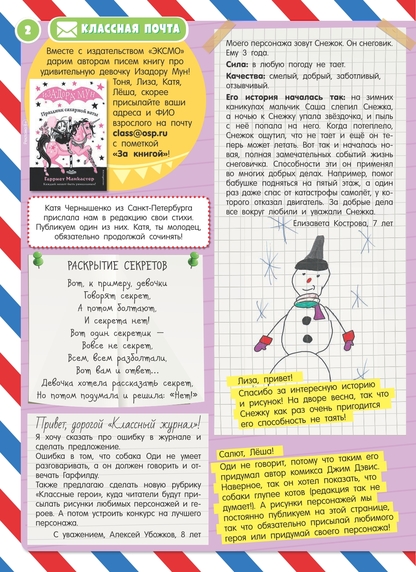 2
КЛАССНАЯ ПОЧТА
Вместе с издательством «ЭКСМО»
дарим авторам писем книгу про
удивительную девочку Изадору Мун!
Тоня, Лиза, Катя,
Лёша, скорее
присылайте ваши
адреса и ФИО
взрослого на почту
class@osp.ru
с пометкой
«За книгой»!
ИЗАДОРА МУН
Праздник сахарной ваты
Гарриет Манкастер
Катя Чернышенко из Санкт-Петербурга
прислала нам в редакцию свои стихи.
Публикуем один из них. Катя, ты молодец,
обязательно продолжай сочинять!
РАСКРЫТИЕ СЕКРЕТОВ
Вот, к примеру, девочки
Говорят секрет,
А потом болтают,
И секрета нет!
Вот один секретик —
Вовсе не секрет,
Всем, всем разболтали,
Вот вам и ответ...
Девочка хотела рассказать секрет,
Но потом подумала и решила: «Нет!»
Привет, дорогой «Классный журнал»!
Я хочу сказать про ошибку в журнале и
сделать предложение.
Ошибка в том, что собака Оди не умеет
разговаривать, а он должен говорить и от-
вечать Гарфилду.
Также предлагаю сделать новую рубрику
«Классные герои», куда читатели будут при-
сылать рисунки любимых персонажей и ге-
роев. А потом устроить конкурс на лучшего
персонажа.
С уважением, Алексей Убожков, 8 лет
Моего персонажа зовут Снежок. Он снеговик.
Ему 3 года.
Сила: в любую погоду не тает.
Качества: смелый, добрый, заботливый,
отзывчивый.
Его история началась так: на зимних
каникулах мальчик Саша слепил Снежка,
а ночью к Снежку упала звёздочка, и пыль
с неё попала на него. Когда потеплело,
Снежок ощутил, что не тает и ещё он те-
перь может летать. Вот так и началась но-
вая, полная замечательных событий жизнь
снеговичка. Способности эти он применял
во многих добрых делах. Например, помог
бабушке подняться на пятый этаж, а один
раз даже спас от катастрофы самолёт, у ко-
торого отказал двигатель. За добрые дела
все вокруг любили и уважали Снежка.
Елизавета Кострова, 7 лет
Лиза, привет!
Спасибо за интересную историю
и рисунок! На дворе весна, так что
Снежку как раз очень пригодится
его способность не таять!
Салют, Лёша!
Оди не говорит, потому что таким его
придумал автор комикса Джим Дэвис.
Наверное, так он хотел показать, что
собаки глупее котов (редакция так не
думает!). А рисунки персонажей мы
постоянно публикуем на этой странице,
так что обязательно присылай любимого
героя или придумай своего персонажа!